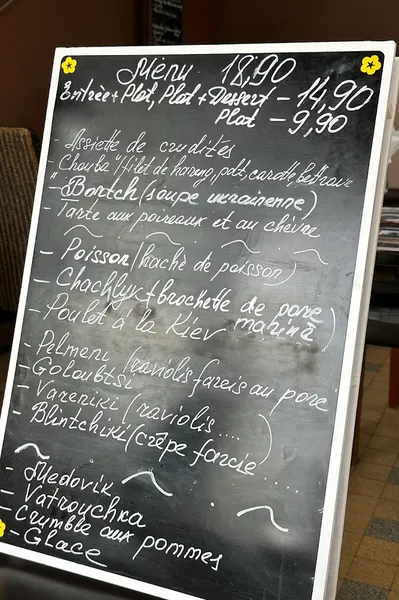 Menu 18,90
Entrèe+Plat, Plat+Dessert - 14,90
Plat - 9,90
- Assiette de crudités
- Chouba "/filet de hareng, pdt, carotte, betterave
- "Bortch (soupe ukrainenne)
- Tarte aux poireaux et au chèvre
- Poisson (haché de poisson)
- Chachlyk (brochette de porc mariné)
- Poulet à la Kiev
- Pelmeni (raviolis farcis au porc
- Goloubtsi
- Vareniki (raviolis ....)
- Blintchiki (crêpe farcie .....
- Medovik
- Vatrouchka
- Crumble aux pommes
- Glace